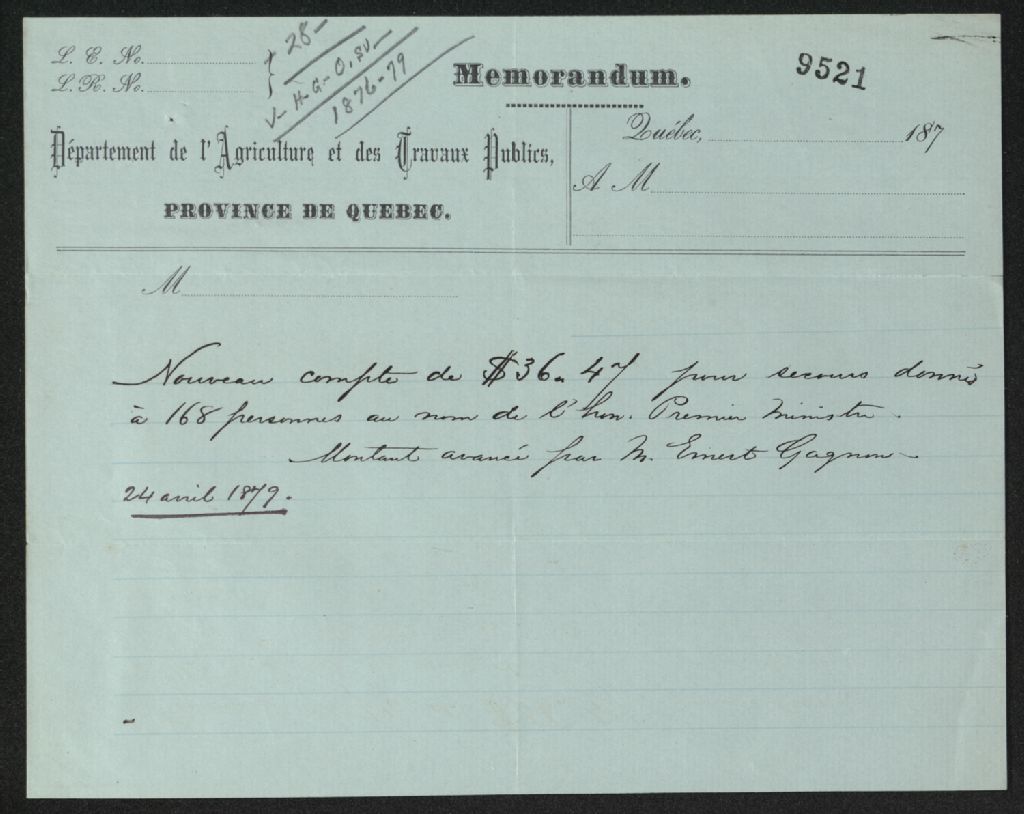 L. E. No.
L. R. No.
28-
V-H-G-O. SV.
1876-79
Memorandum.
9521
Département de l'Agriculture et des Travaux Publics,
PROVINCE DE QUEBEC.
Québec, 187
A M
M
Nouveau compte de $36.47 pour secours donnés
à 168 personnes au nom de l'hon. Premier Ministre.
Montant avancé par M. Ernest Gagnon-
24 avril 1879.